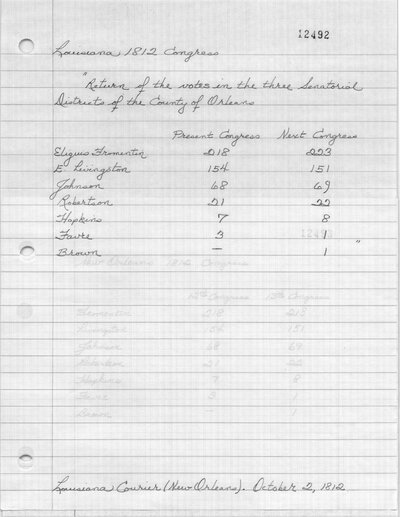 12492
Louisiana 1812 Congress
"Return of the votes in the three Senatorial
Districts of the County of Orleans
Present Congress Next Congress
Eligius Fromentin 218 223
E. Livingston 154 151
Johnson 68 69
Robertson 21 22
Hopkins 7 8
Favre 3 1
Brown — 1 "
12493
New Orleans 1812 Congress
12th Congress 13th Congress
Fromentin 218 213
Livingston 154 151
Johnson 68 69
Robertson 21 22
Hopkins 7 8
Favre 3 1
Brown — 1
Louisiana Courier (New Orleans). October 2, 1812